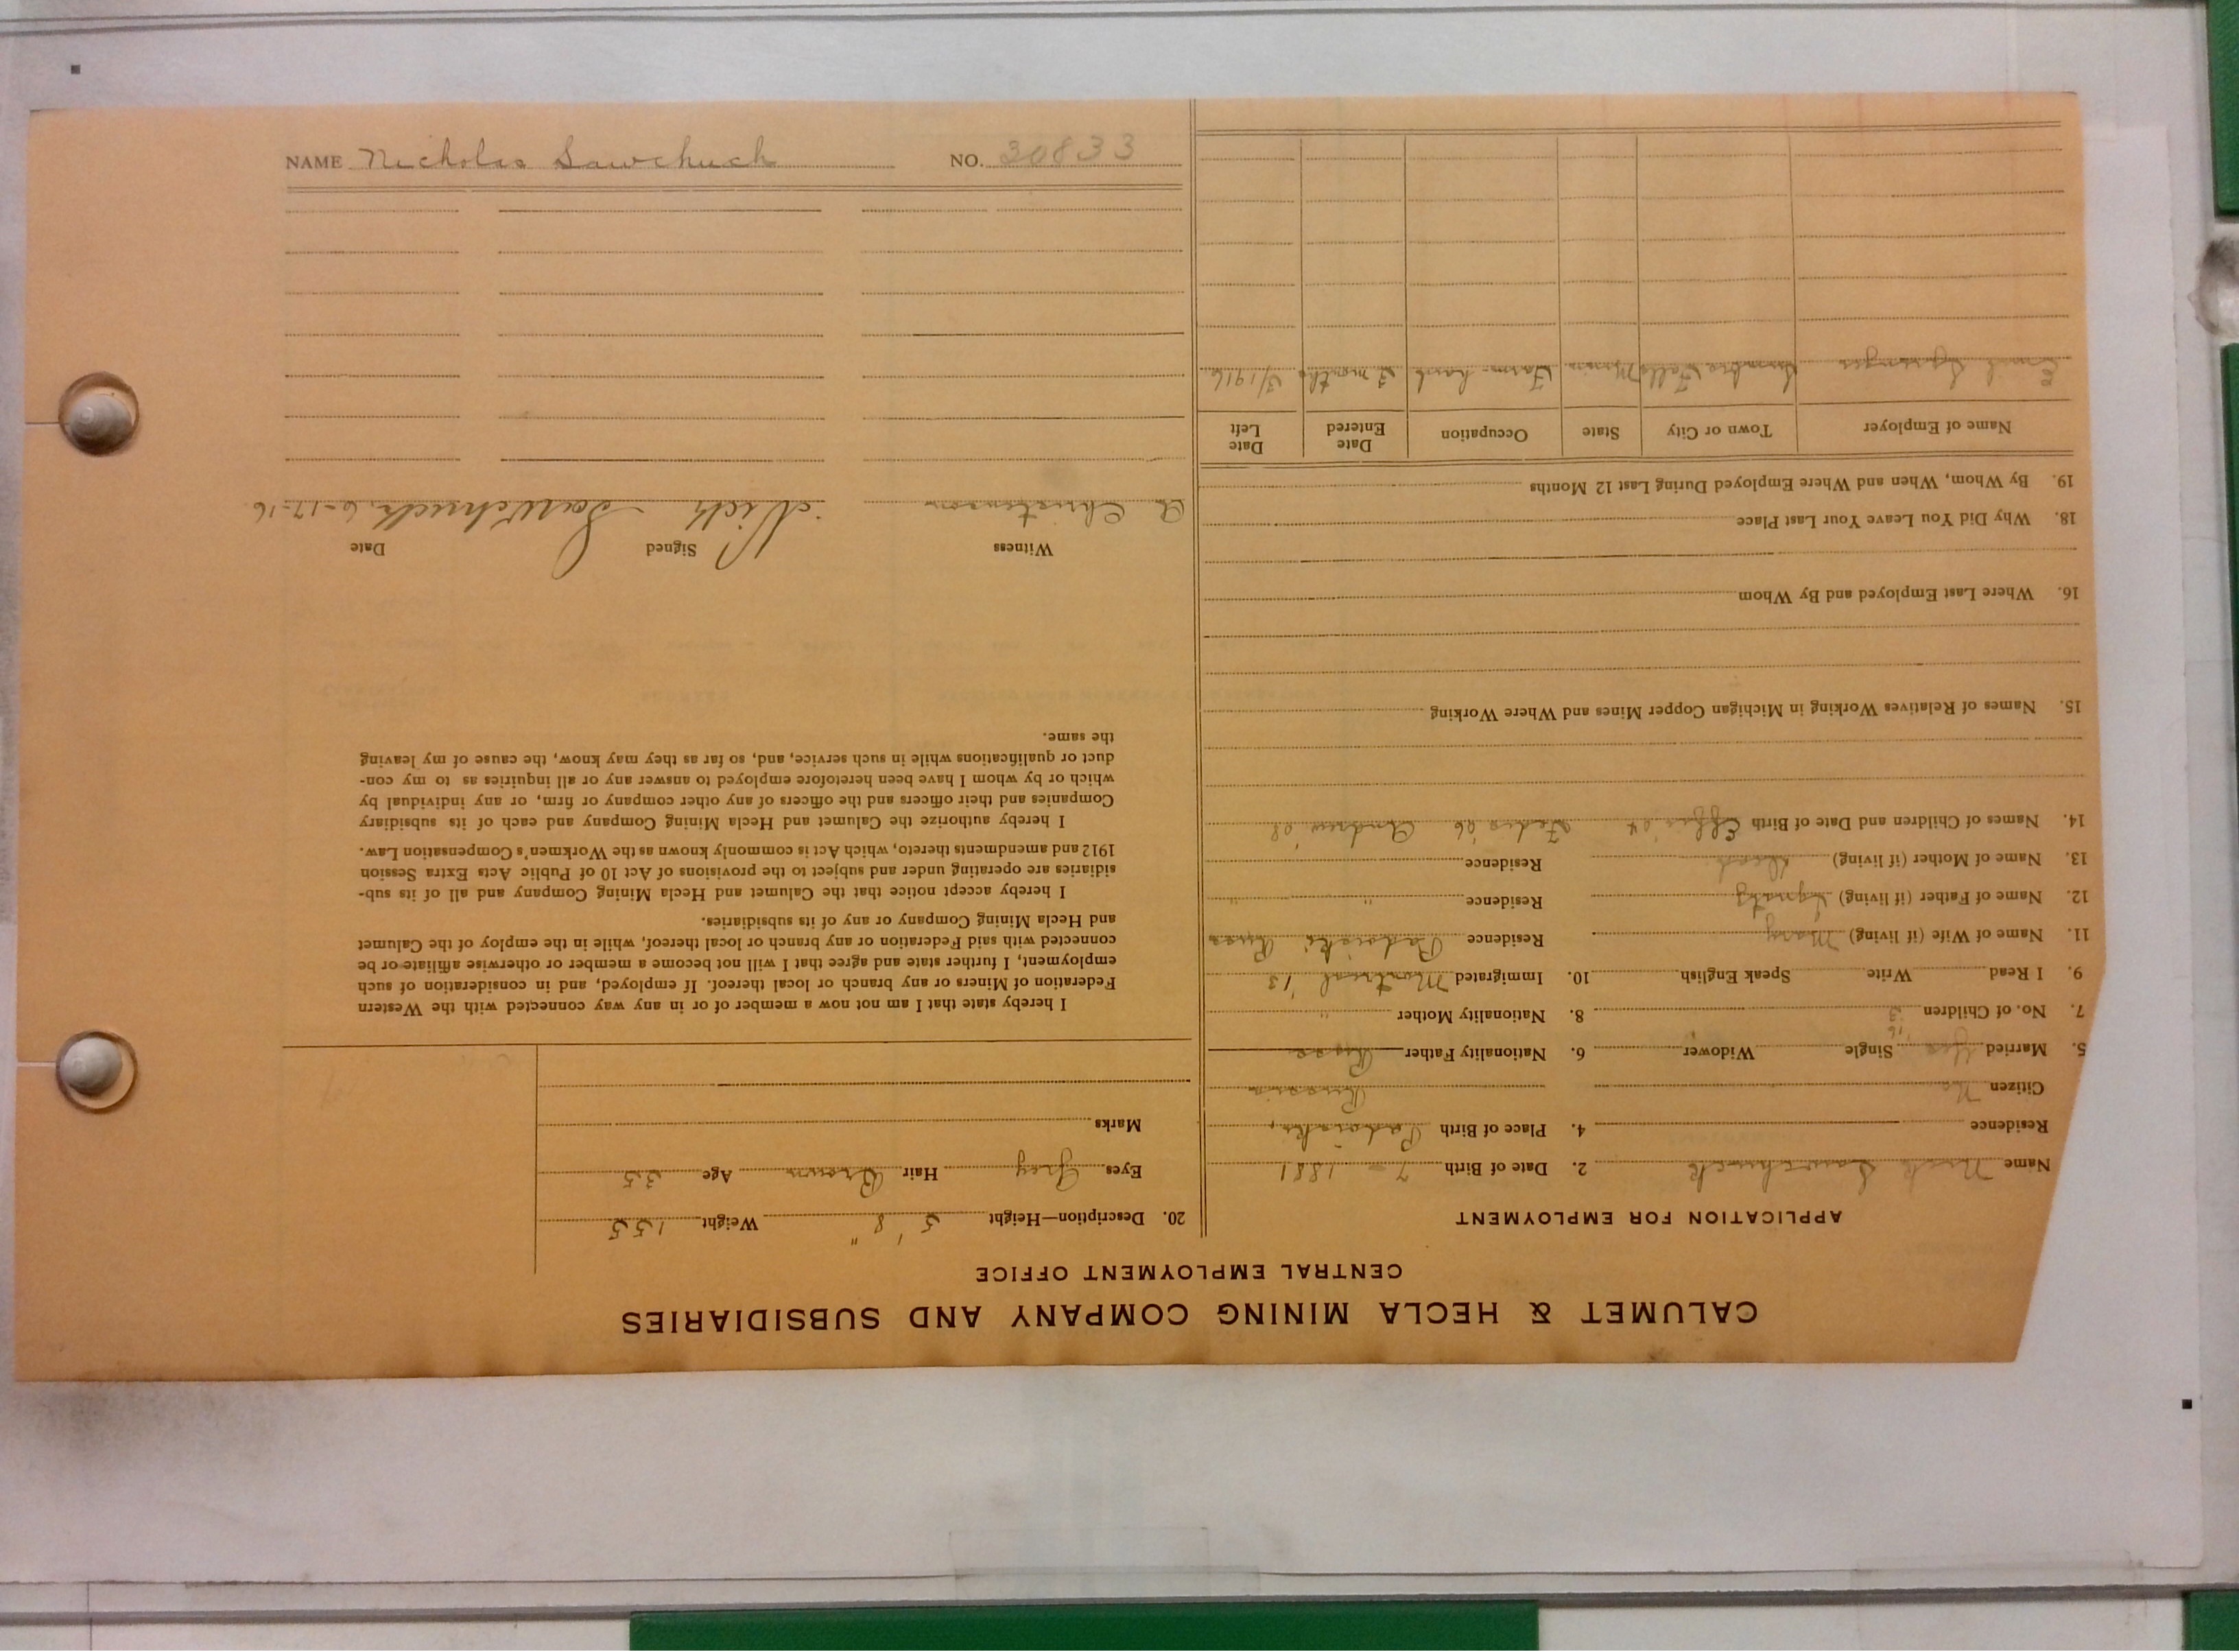 NAME Nicholas Sawchuck NO. 30833
CALUMET & HECLA MINING COMPANY AND SUBSIDIARIES
CENTRAL EMPLOYMENT OFFICE
APPLICATION FOR EMPLOYMENT
Name Nick Sawchuck 2. Date of Birth 7 - 1881
Residence 4. Place of Birth
Citizen No Russia
5. Married Yes Single Widower 6. Nationality Father
7. No. of Children 3 8. Nationality Mother "
9. I Read Write Speak English 10. Immigrated Montreal '13
11. Name of Wife (if living) Mary Residence
12. Name of Father (if living) Residence " "
13. Name of Mother (if living) Dead Residence
14. Names of Children and Date of Birth '04 '06 Andrew '08
15. Names of Relatives Working in Michigan Copper Mines and Where Working
16. Where Last Employed and By Whom
18. Why Did You Leave Your Last Place
19. By Whom, When and Where Employed During Last 12 Months
Name of Employer Town or City State Occupation Date Entered Date Left
Falls Farm-hand 2 months 3/1916
20. Description—Height 5' 8" Weight 155
Eyes Grey Hair Brown Age 35
Marks
I hereby state that I am not now a member of or in any way connected with the Western
Federation of Miners or any branch or local thereof. If employed, and in consideration of such
employment, I further state and agree that I will not become a member or otherwise affiliate or be
connected with said Federation or any branch or local thereof, while in the employ of the Calumet
and Hecla Mining Company or any of its subsidiaries.
I hereby accept notice that the Calumet and Hecla Mining Company and all of its sub-
sidiaries are operating under and subject to the provisions of Act 10 of Public Acts Extra Session
1912 and amendments thereto, which Act is commonly known as the Workmen's Compensation Law.
I hereby authorize the Calumet and Hecla Mining Company and each of its subsidiary
Companies and their officers and the officers of any other company or firm, or any individual by
which or by whom I have been heretofore employed to answer any or all inquiries as to my con-
duct or qualifications while in such service, and, so far as they may know, the cause of my leaving
the same.
Witness Signed Date
Nick Sawchuck 6-17-16